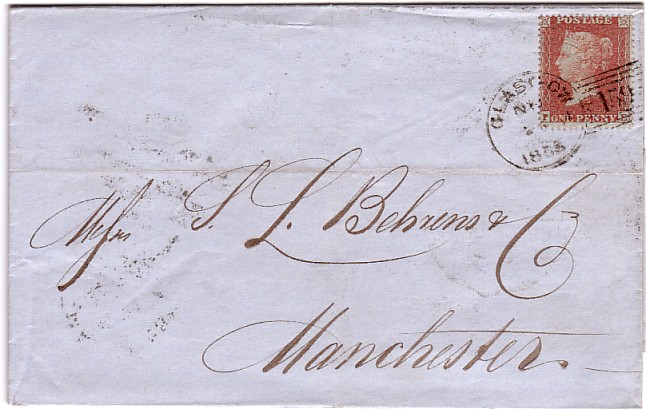 POSTAGE
ONE PENNY
GLASGOW
1855
159
Messrs S. L. Behrens & Co
Manchester.